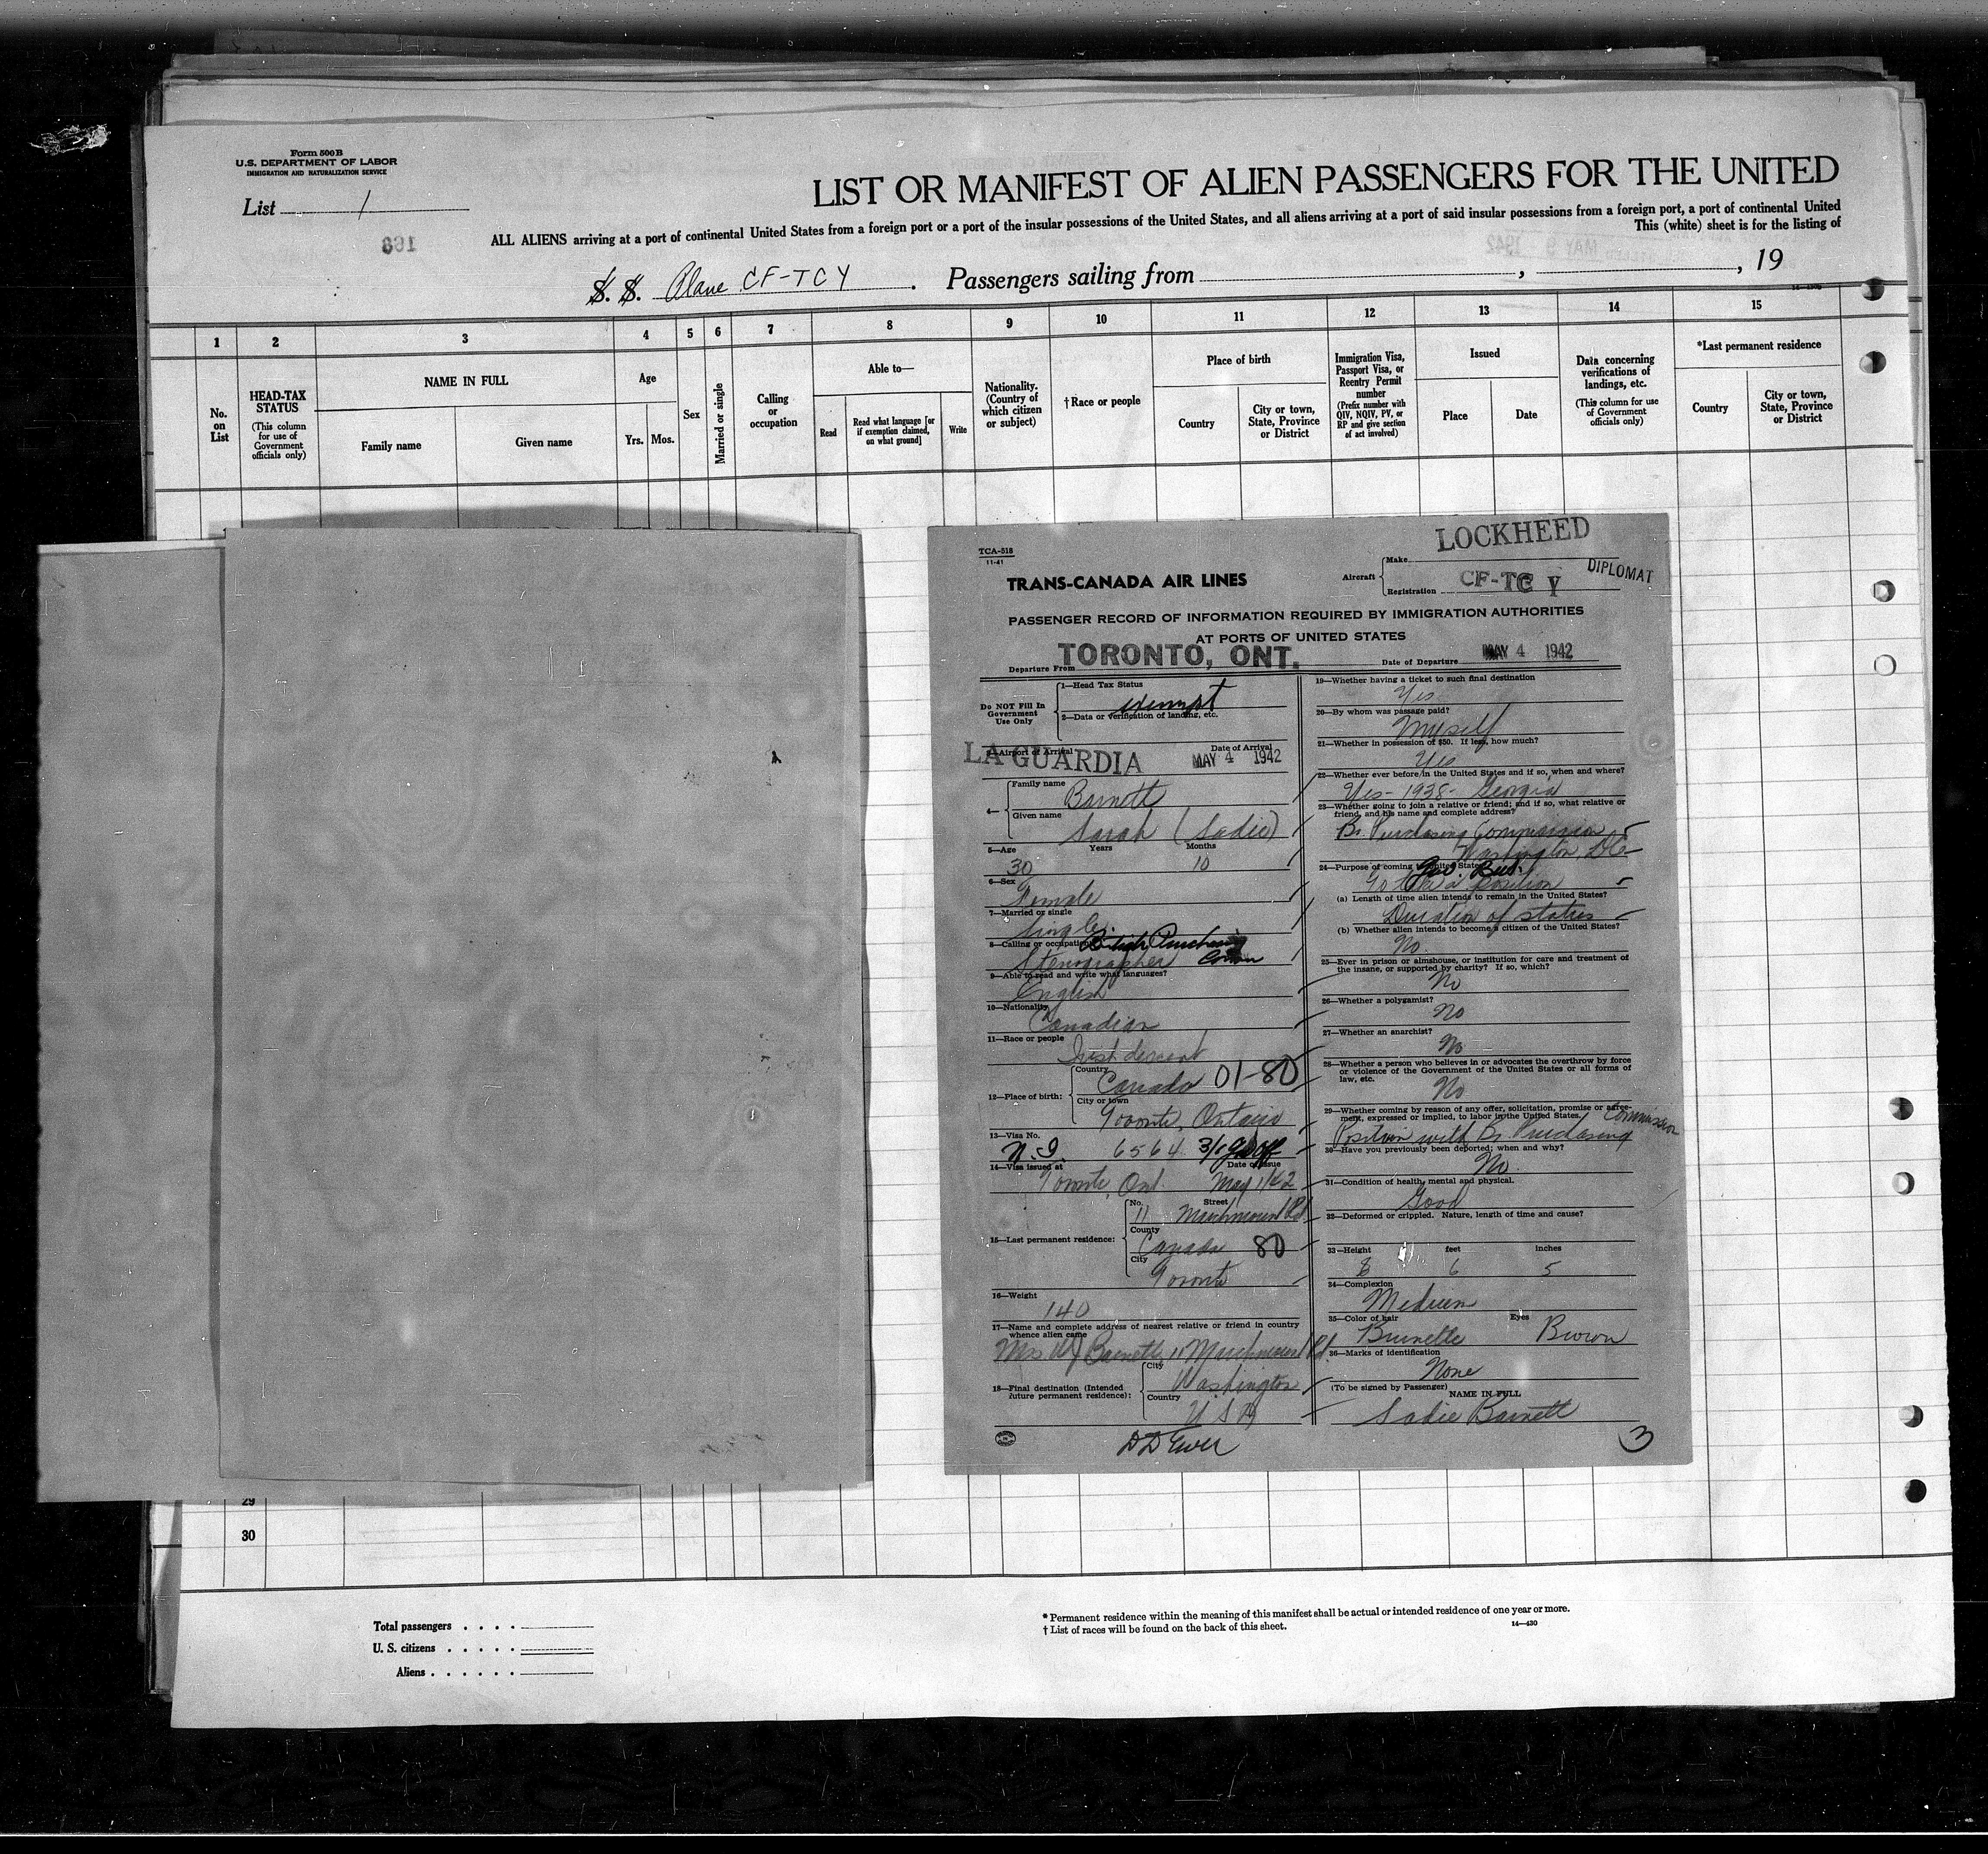 Form 500 B
U.S. DEPARTMENT OF LABOR
IMMIGRATION AND NATURALIZATION SERVICE
List 1
166
LIST OR MANIFEST OF ALIEN PASSENGERS FOR THE UNITED
ALL ALIENS arriving at a port of continental United States from a foreign port or a port of the insular possessions of the United States, and all aliens arriving at a port of said insular possessions from a foreign port, a port of continental United
This (white) sheet is for the listing of
MAY 9 1942
S. S. Plane CF-TCY . Passengers sailing from , , 19
1 2 3 4 5 6 7 8 9 10 11 12 13 14 15
No. on List
HEAD-TAX STATUS
(This column for use of Government officials only)
NAME IN FULL
Family name
Given name
Age
Yrs. Mos.
Sex
Married or single
Calling or occupation
Able to—
Read
Read what language [or if exemption claimed, on what ground]
Write
Nationality. (Country of which citizen or subject)
† Race or people
Place of birth
Country
City or town, State, Province or District
Immigration Visa, Passport Visa, or Reentry Permit number
(Prefix number with QIV, NQIV, PV, or RP and give section of act involved)
Issued
Place
Date
Data concerning verifications of landings, etc.
(This column for use of Government officials only)
*Last permanent residence
Country
City or town, State, Province or District
TCA-518
11-41
LOCKHEED
TRANS-CANADA AIR LINES
Aircraft
Make
Registration CF-TC Y
DIPLOMAT
PASSENGER RECORD OF INFORMATION REQUIRED BY IMMIGRATION AUTHORITIES
AT PORTS OF UNITED STATES
Departure From TORONTO, ONT.
Date of Departure MAY 4 1942
Do NOT Fill In Government Use Only
1—Head Tax Status
exempt
2—Data or verification of landing, etc.
3—Airport of Arrival
LA GUARDIA
Date of Arrival
MAY 4 1942
4—
Family name
Barnett
Given name
Sarah (Sadie)
5—Age Years Months
30 10
6—Sex
Female
7—Married or single
Single
8—Calling or occupation British Purchasing
Stenographer Comm
9—Able to read and write what languages?
English
10—Nationality
Canadian
11—Race or people
Irish descent
12—Place of birth:
Country
Canada 01-80
City or town
Toronto, Ontario
13—Visa No.
N.I. 6564
14—Visa issued at Date of Issue
Toronto, Ont. May 1/42
15—Last permanent residence:
No. Street
11 Marchmount Rd
County
Canada 80
City
Toronto
16—Weight
140
17—Name and complete address of nearest relative or friend in country whence alien came
Barnett, 11 Marchmount Rd.
18—Final destination (Intended future permanent residence):
City
Washington
Country
U S A
19—Whether having a ticket to such final destination
Yes
20—By whom was passage paid?
Myself
21—Whether in possession of $50. If less, how much?
Yes
22—Whether ever before in the United States and if so, when and where?
Yes - 1938 - Georgia
23—Whether going to join a relative or friend; and if so, what relative or friend, and his name and complete address?
Br. Purchasing Commission
Washington, D.C.
24—Purpose of coming to United States
Gov. Bus.
To take a position
(a) Length of time alien intends to remain in the United States?
Duration of status
(b) Whether alien intends to become a citizen of the United States?
No.
25—Ever in prison or almshouse, or institution for care and treatment of the insane, or supported by charity? If so, which?
No
26—Whether a polygamist?
No
27—Whether an anarchist?
No
28—Whether a person who believes in or advocates the overthrow by force or violence of the Government of the United States or all forms of law, etc.
No
29—Whether coming by reason of any offer, solicitation, promise or agreement, expressed or implied, to labor in the United States.
Commission
Position with Br. Purchasing
30—Have you previously been deported; when and why?
No.
31—Condition of health, mental and physical.
Good
32—Deformed or crippled. Nature, length of time and cause?
33—Height feet inches
6 5
34—Complexion
Medium
35—Color of hair Eyes
Brunette Brown
36—Marks of identification
None
(To be signed by Passenger) NAME IN FULL
Sadie Barnett
3
29
30
Total passengers . . . .
U. S. citizens . . . . .
Aliens . . . . . .
* Permanent residence within the meaning of this manifest shall be actual or intended residence of one year or more.
† List of races will be found on the back of this sheet.
14—430